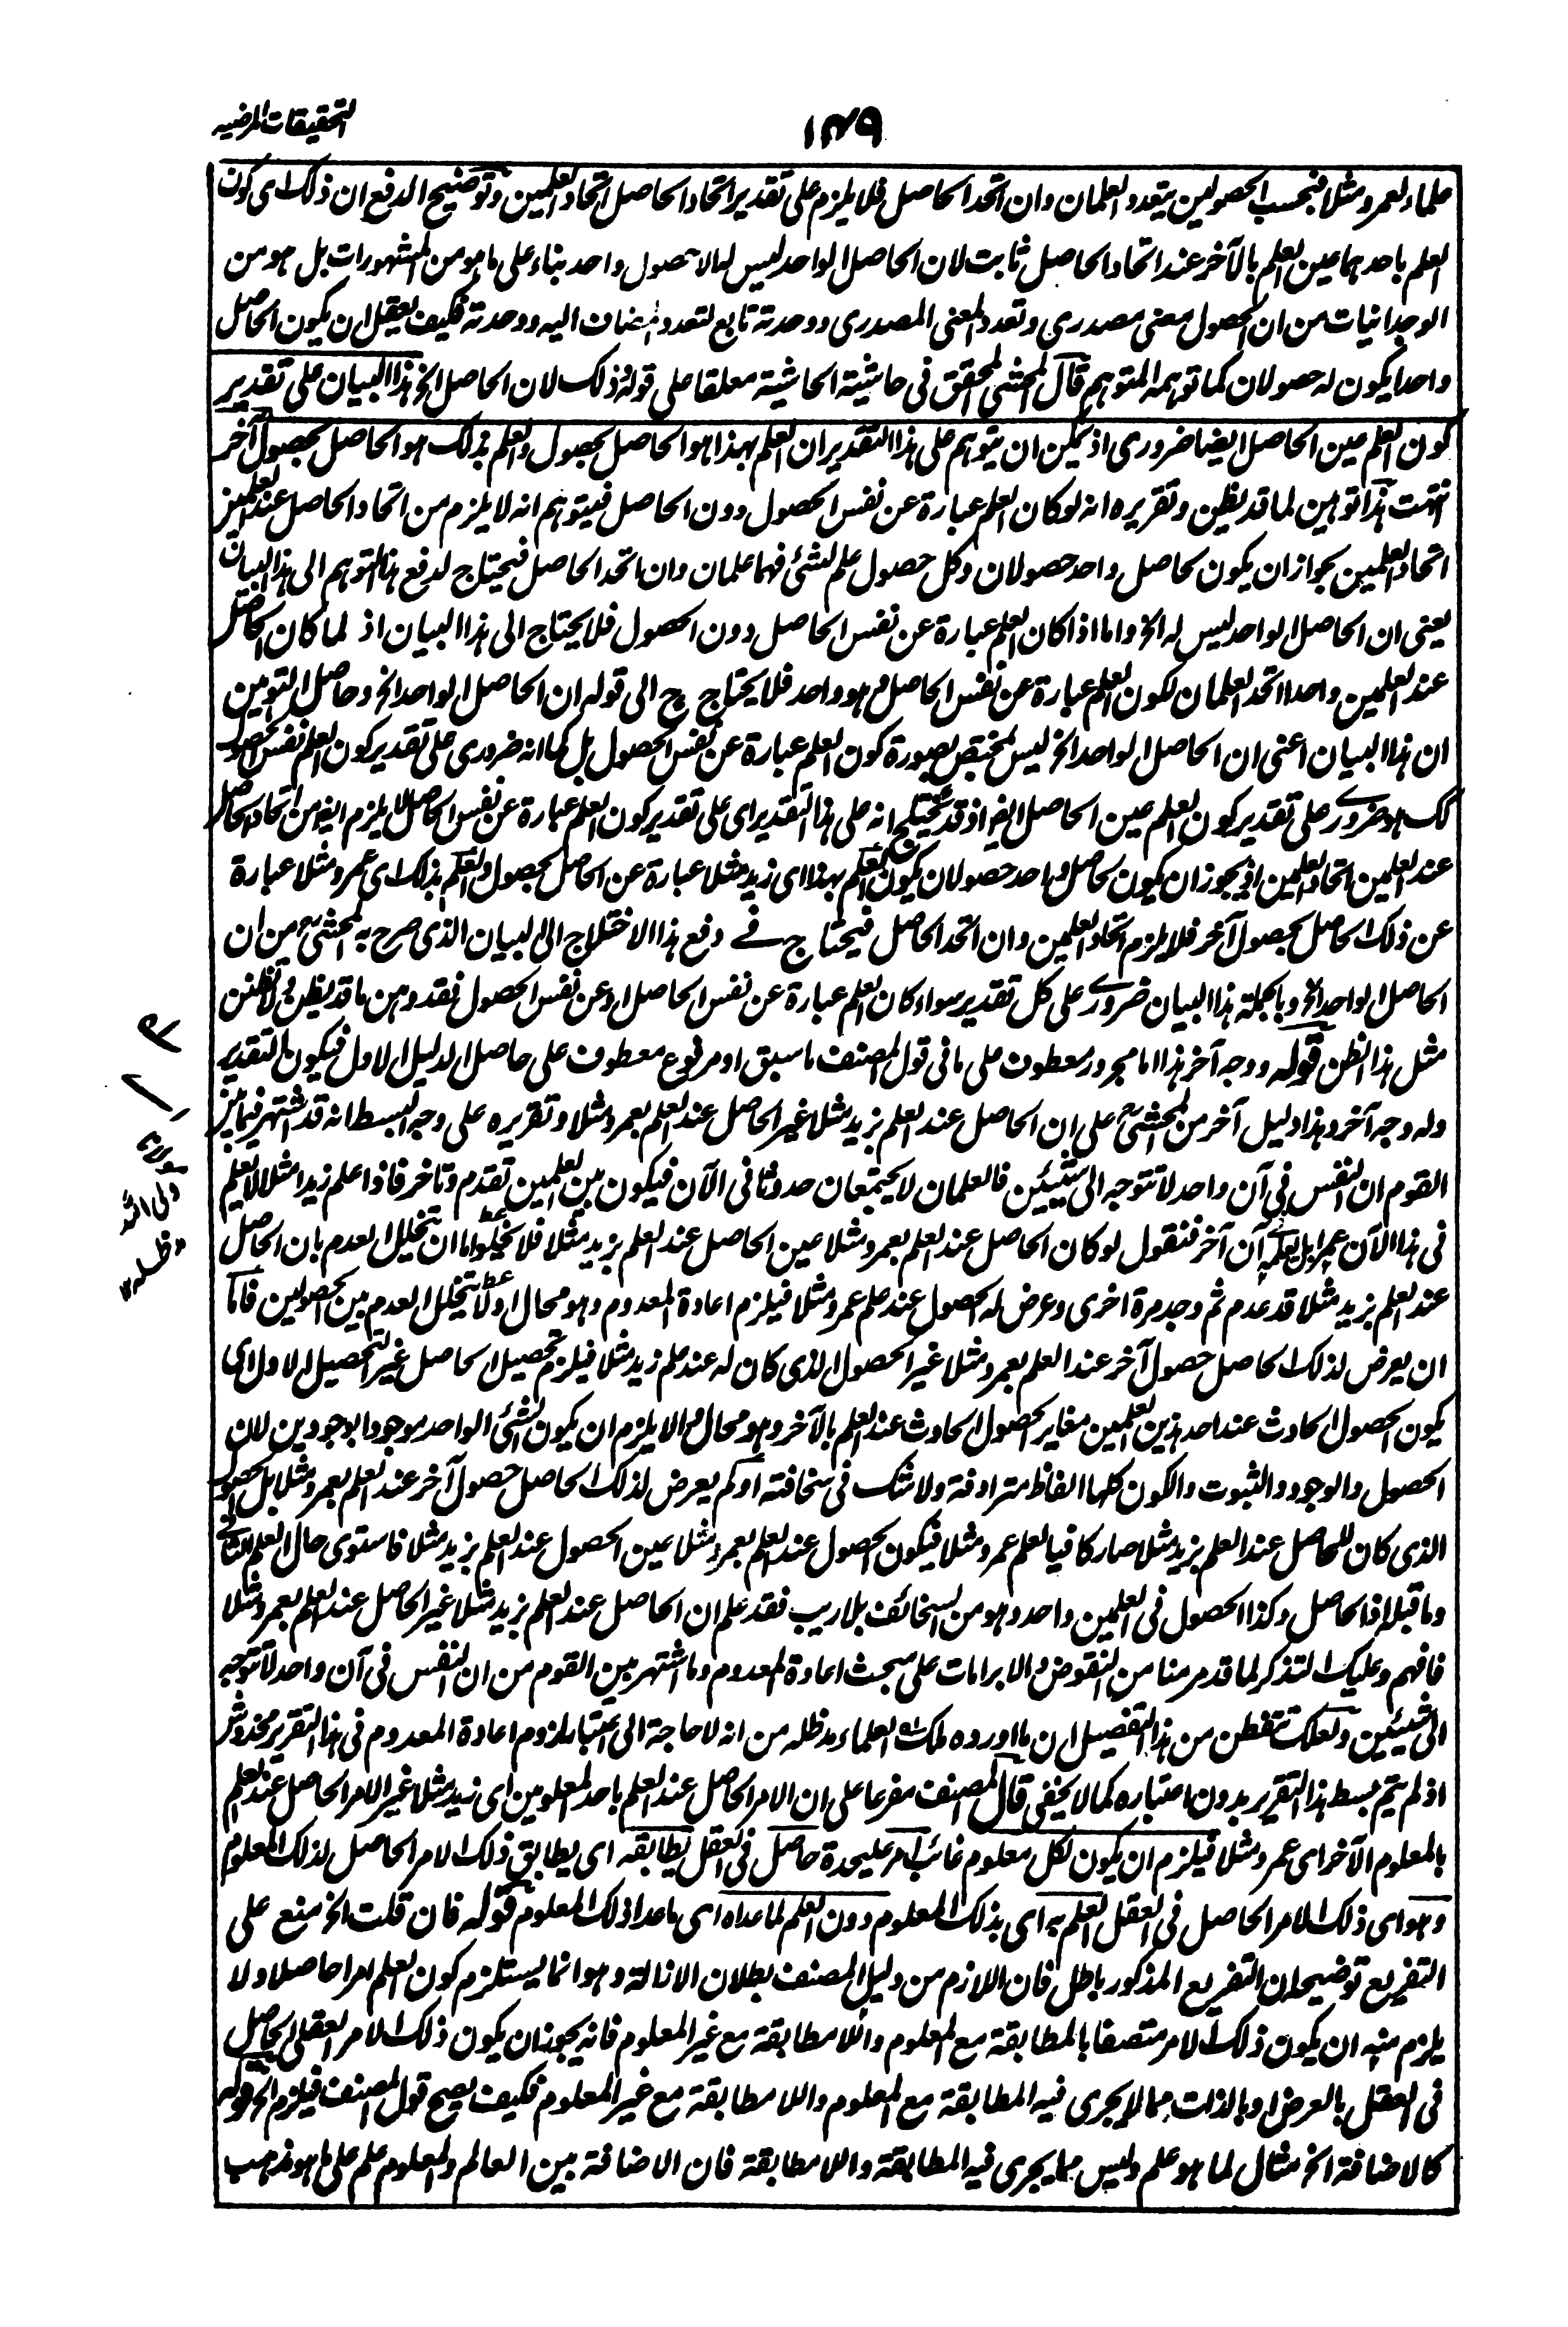 التحقيقات المرضيه
١٤٩
علما لعمرو مثلا فبحسب الحصولين يتعدد العلمان وان اتحد الحاصل فلا يلزم على تقدير اتحاد الحاصل اتحاد العلمين وتوضيح الدفع ان ذلك اى كون
العلم باحدهما عين العلم بالآخر عند اتحاد الحاصل ثابت لان الحاصل الواحد ليس له الا حصول واحد بناء على ما هو من المشهورات بل هو من
الوجدانيات من ان الحصول معنى مصدرى وتعدد المعنى المصدرى ووحدته تابع لتعدد المضاف اليه ووحدته فكيف يعقل ان يكون الحاصل
واحدا يكون له حصولان كما توهمه المتوهم قال المحشى المحقق فى حاشية الحاشية معلقا على قوله وذلك لان الحاصل الخ هذا البيان على تقدير
كون العلم عين الحاصل ايضا ضرورى اذ يمكن ان يتوهم على هذا التقدير ان العلم بهذا هو الحاصل بحصول والعلم بذلك هو الحاصل بحصول آخر
انتهت هذا توهين لما قد يظن وتقريره انه لو كان العلم عبارة عن نفس الحصول دون الحاصل فيتوهم انه لا يلزم من اتحاد الحاصل عند العلمين
اتحاد العلمين بجواز ان يكون لحاصل واحد حصولان وكل حصول علم لشئ فهما علمان وان اتحد الحاصل فيحتاج لدفع هذا التوهم الى هذا البيان
يعنى ان الحاصل الواحد ليس له الخ واما اذا كان العلم عبارة عن نفس الحاصل دون الحصول فلا يحتاج الى هذا البيان اذ لما كان الحاصل
عند العلمين واحدا اتحد العلمان لكون العلم عبارة عن نفس الحاصل وهو واحد فلا يحتاج ح الى قوله ان الحاصل الواحد الخ وحاصل التوهين
ان هذا البيان اعنى ان الحاصل الواحد الخ ليس بمختص بصورة كون العلم عبارة عن نفس الحصول بل كما انه ضرورى على تقدير كون العلم نفس الحصول
كك هو ضرورى على تقدير كون العلم عين الحاصل ايضا اذ قد يختلج انه على هذا التقدير اى على تقدير كون العلم عبارة عن نفس الحاصل لا يلزم ايضا من اتحاد الحاصل
عند العلمين اتحاد العلمين اذ يجوز ان يكون لحاصل واحد حصولان يكون العلم بهذا اى زيد مثلا عبارة عن الحاصل بحصول والعلم بذلك اى عمرو مثلا عبارة
عن ذلك الحاصل بحصول آخر فلا يلزم اتحاد العلمين وان اتحد الحاصل فيحتاج فى دفع هذا الاختلاج الى البيان الذى صرح به المحشى من ان
الحاصل الواحد الخ وبالجملة هذا البيان ضرورى على كل تقدير سواء كان العلم عبارة عن نفس الحاصل او عن نفس الحصول فقد وهن ما قد يظن ولا تظنن
مثل هذا الظن قوله ووجه آخر هذا اما مجرور معطوف على ما فى قول المصنف ما سبق او مرفوع معطوف على حاصل الدليل الاول فيكون التقدير
وله وجه آخر وهذا دليل آخر من المحشى على ان الحاصل عند العلم بزيد مثلا غير الحاصل عند العلم بعمرو مثلا وتقريره على وجه البسط انه قد اشتهر فيما بين
القوم ان النفس فى آن واحد لا تتوجه الى شيئين فالعلمان لا يجتمعان حدوثا فى الآن فيكون بين العلمين تقدم وتاخر فاذا علم زيدا مثلا لا يعلم
فى هذا الآن عمرا بل يعلمه آن آخر فنقول لو كان الحاصل عند العلم بعمرو مثلا عين الحاصل عند العلم بزيد مثلا فلا يخلو اما ان يتخلل العدم بان الحاصل
عند العلم بزيد مثلا قد عدم ثم وجد مرة اخرى وعرض له الحصول عند علم عمرو مثلا فيلزم اعادة المعدوم وهو محال او لا يتخلل العدم بين الحصولين فاما
ان يعرض لذلك الحاصل حصول آخر عند العلم بعمرو مثلا غير الحصول الذى كان له عند علم زيد مثلا فيلزم تحصيل الحاصل غير التحصيل الاول اى
يكون الحصول الحادث عند احد هذين العلمين مغاير الحصول الحادث عند العلم بالآخر وهو محال والا يلزم ان يكون الشئ الواحد موجودا بوجودين لان
الحصول والوجود والثبوت والكون كلها الفاظ مترادفة ولا شك فى سخافته او لم يعرض لذلك الحاصل حصول آخر عند العلم بعمرو مثلا بل الحصول
الذى كان للحاصل عند العلم بزيد مثلا صار كافيا لعلم عمرو مثلا فيكون الحصول عند العلم بعمرو مثلا عين الحصول عند العلم بزيد مثلا فاستوى حال العلم الثانى
وما قبله اذ الحاصل وكذا الحصول فى العلمين واحد وهو من السخائف بلا ريب فقد علم ان الحاصل عند العلم بزيد مثلا غير الحاصل عند العلم بعمرو مثلا
فافهم وعليك التذكر لما قد مر منا من النقوض والابرامات على مبحث اعادة المعدوم وما اشتهر بين القوم من ان النفس فى آن واحد لا تتوجه
الى شيئين ولعلك تتفطن من هذا التفصيل ان ما اورده ملك العلماء مد ظله من انه لا حاجة الى اعتبار لزوم اعادة المعدوم فى هذا التقرير مخدوش
اذ لم يتم بسط هذا التقرير بدون اعتباره كما لا يخفى قال المصنف مفرعا على ان الامر الحاصل عند العلم باحد المعلومين اى زيد مثلا غير الامر الحاصل عند العلم
بالمعلوم الآخر اى عمرو مثلا فيلزم ان يكون لكل معلوم غائب امر عليحدة حاصل فى العقل يطابقه اى يطابق ذلك الامر الحاصل لذلك المعلوم
وهو اى ذلك الامر الحاصل فى العقل العلم به اى بذلك المعلوم دون العلم لما عداه اى ما عدا ذلك المعلوم قوله فان قلت الخ منع على
التفريع توضيحه ان التفريع المذكور باطل فان اللازم من دليل المصنف بطلان الازالة وهو انما يستلزم كون العلم امرا حاصلا ولا
يلزم منه ان يكون ذلك الامر متصفا بالمطابقة مع المعلوم واللا مطابقة مع غير المعلوم فانه يجوز ان يكون ذلك الامر العقلى الحاصل
فى العقل بالعرض او بالذات مما لا يجرى فيه المطابقة مع المعلوم واللا مطابقة مع غير المعلوم فكيف يصح قول المصنف فيلزم الخ قوله
كالاضافة الخ مثال لما هو علم وليس مما يجرى فيه المطابقة واللا مطابقة فان الاضافة بين العالم والمعلوم علم على ما هو مذهب
ولى الله
مد ظله